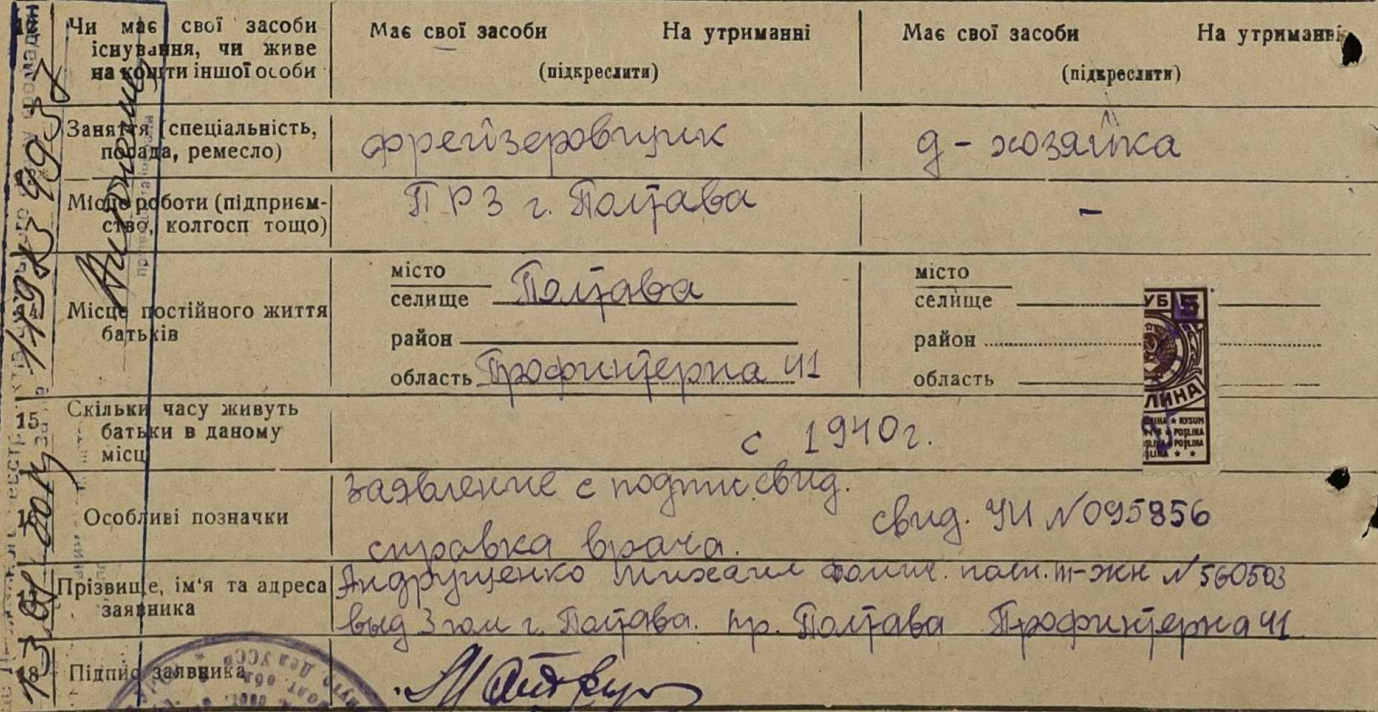 Чи має свої засоби існування, чи живе на кошти іншої особи
Має свої засоби На утриманні
(підкреслити)
Має свої засоби На утриманні
(підкреслити)
Заняття (спеціальність, посада, ремесло)
фрейзеровщик
д - хозяйка
Місце роботи (підприєм-
ство, колгосп тощо)
ПРЗ г. Полтава
-
Місце постійного життя батьків
місто
селище Полтава
район
область Профинтерна 41
місто
селище
район
область
15. Скільки часу живуть батьки в даному місці
с 1940 г.
Особливі позначки
заявление с подпис. свид.
свид. УИ №095856
справка врача.
Прізвище, ім'я та адреса заявника
Андрущенко Михаил Фомич. №560503
выд 3 гом г. Полтава. пр. Полтава Профинтерна 41
18 Підпис заявника
УБ 5
ЛИНА
RYSUM
POŞLINA
POŞLINA